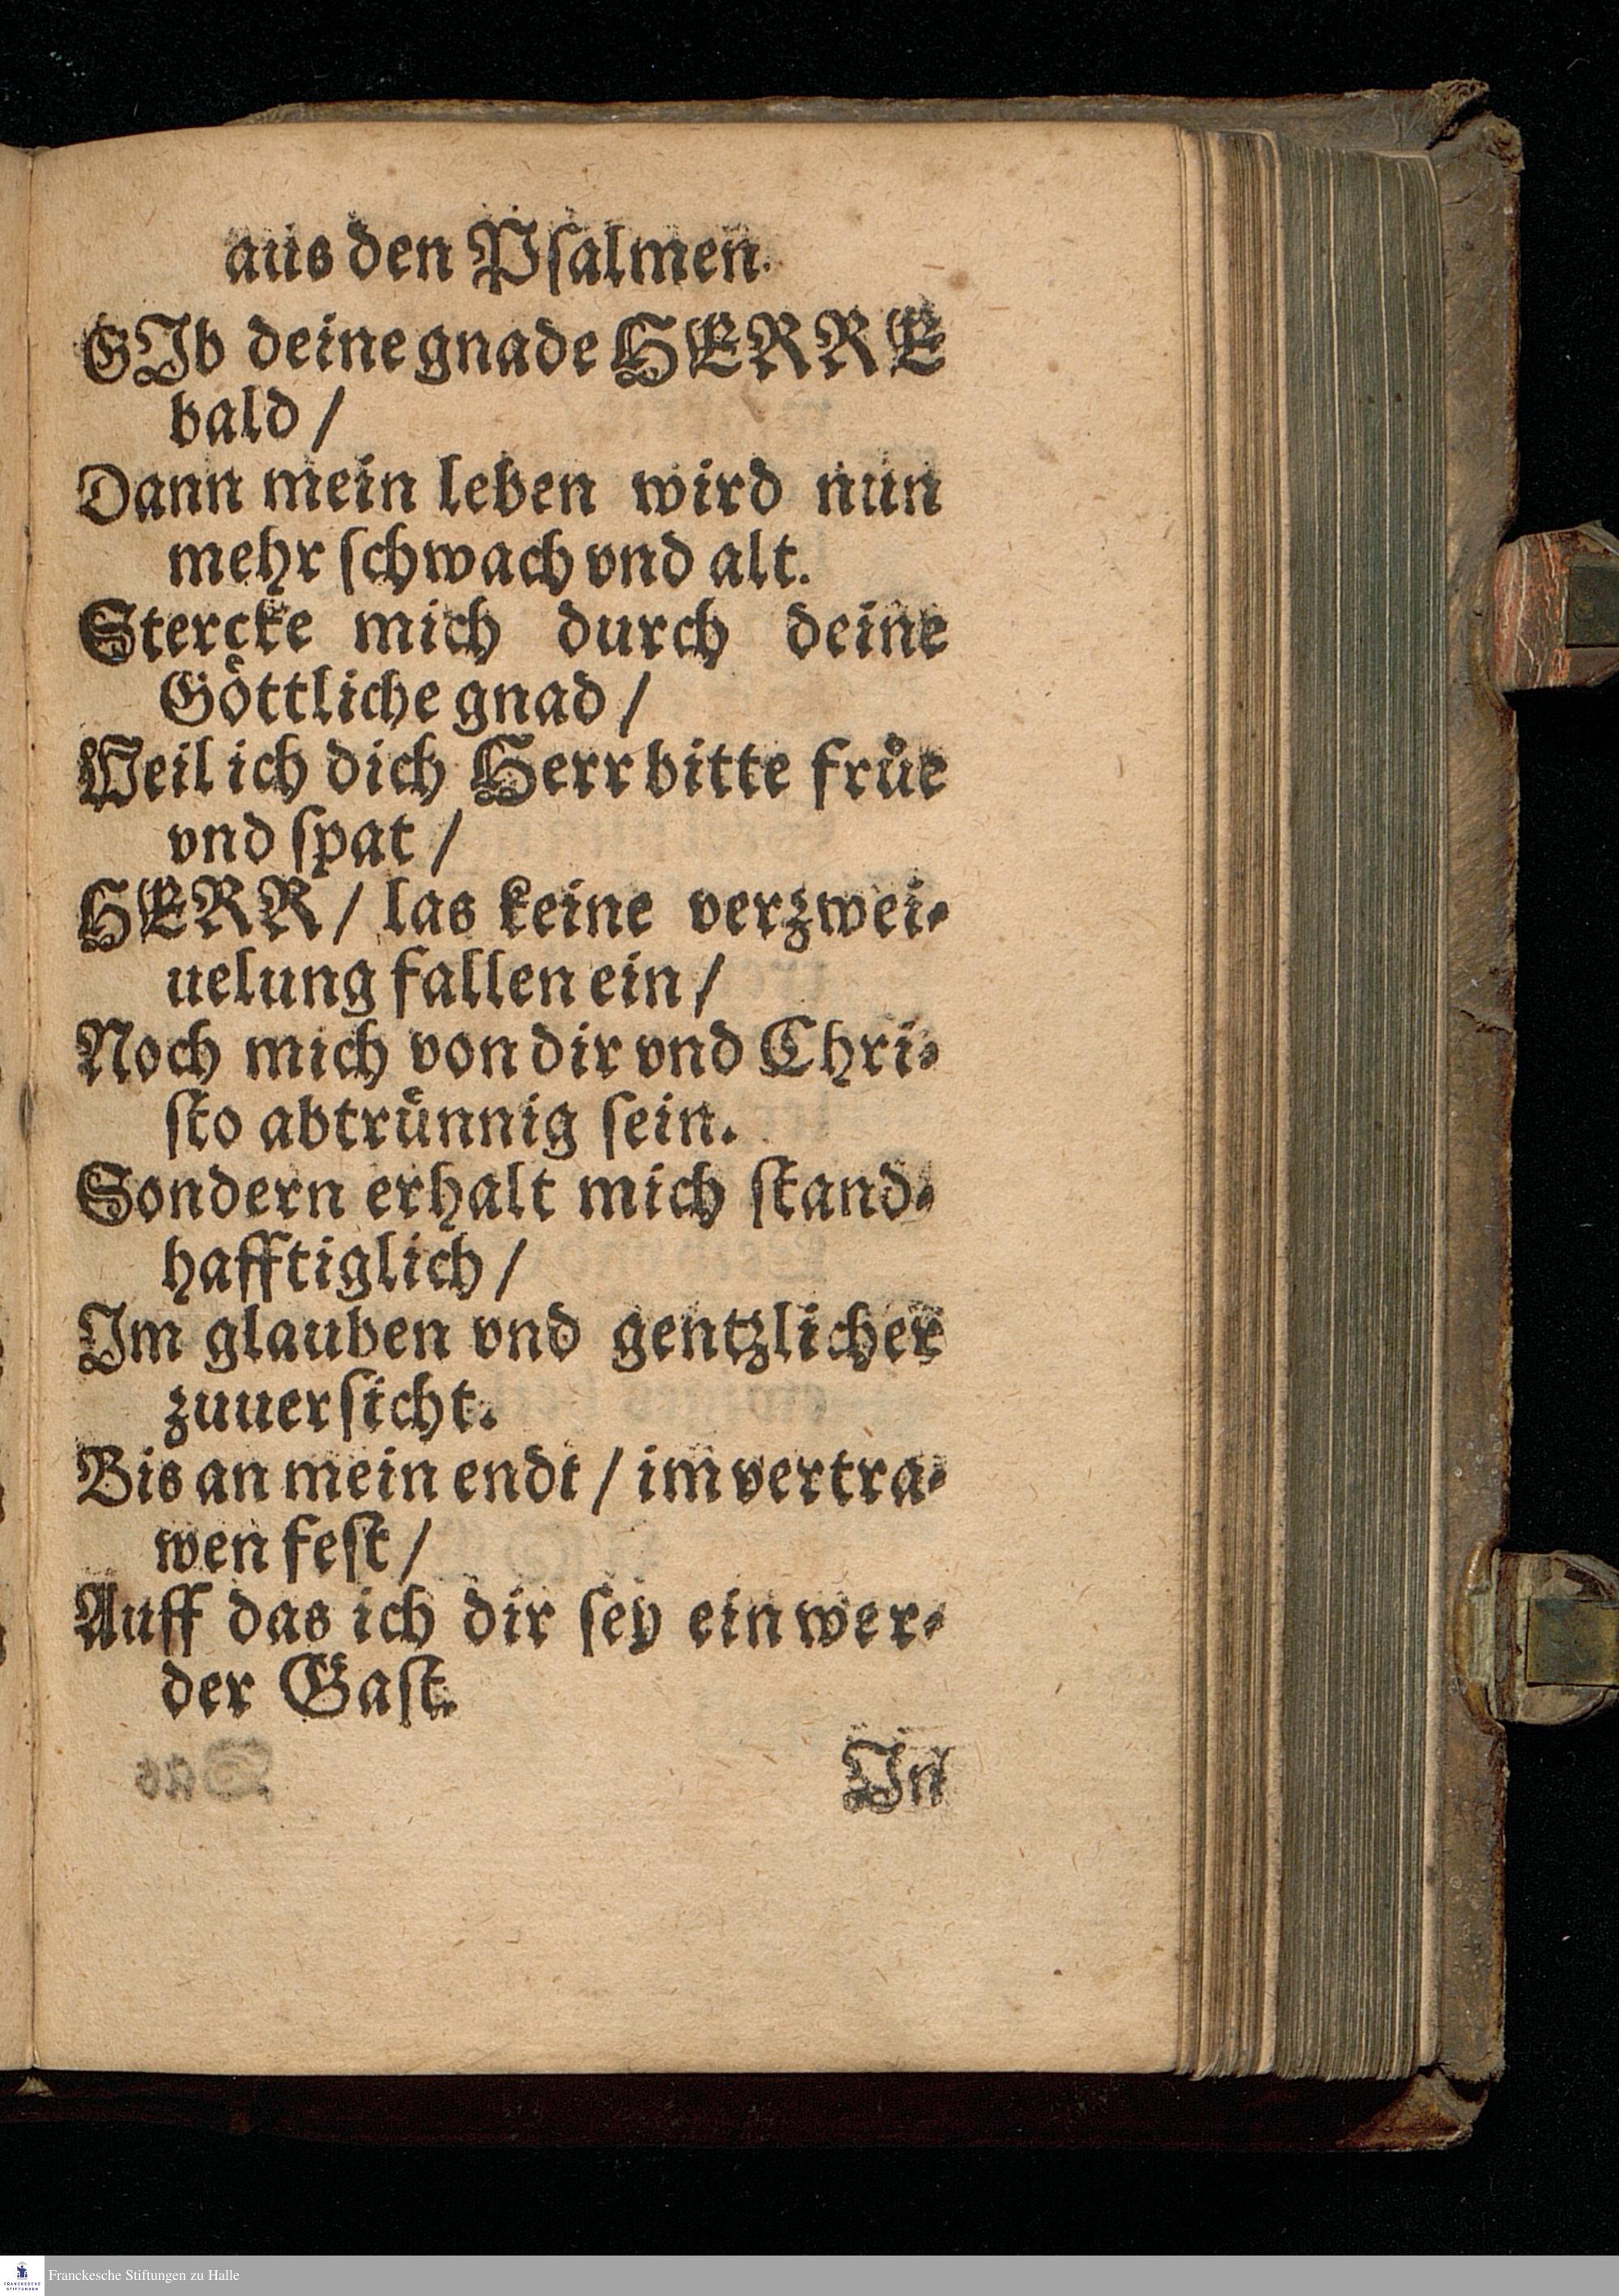 aus den Pſalmen.
GIb deine gnade HERRE
bald /
Dann mein leben wird nun
mehr ſchwach vnd alt.
Stercke mich durch deine
Goͤttliche gnad /
Weil ich dich Herr bitte fruͤe
vnd ſpat /
HERR / las keine verzwei⸗
uelung fallen ein /
Noch mich von dir vnd Chri⸗
ſto abtruͤnnig ſein.
Sondern erhalt mich ſtand⸗
hafftiglich /
Im glauben vnd gentzlicher
zuuerſicht.
Bis an mein endt / im vertra⸗
wen feſt /
Auff das ich dir ſey ein wer⸗
der Gaſt.
In
Franckesche Stiftungen zu Halle
FRANCKESCHE
STIFTUNGEN